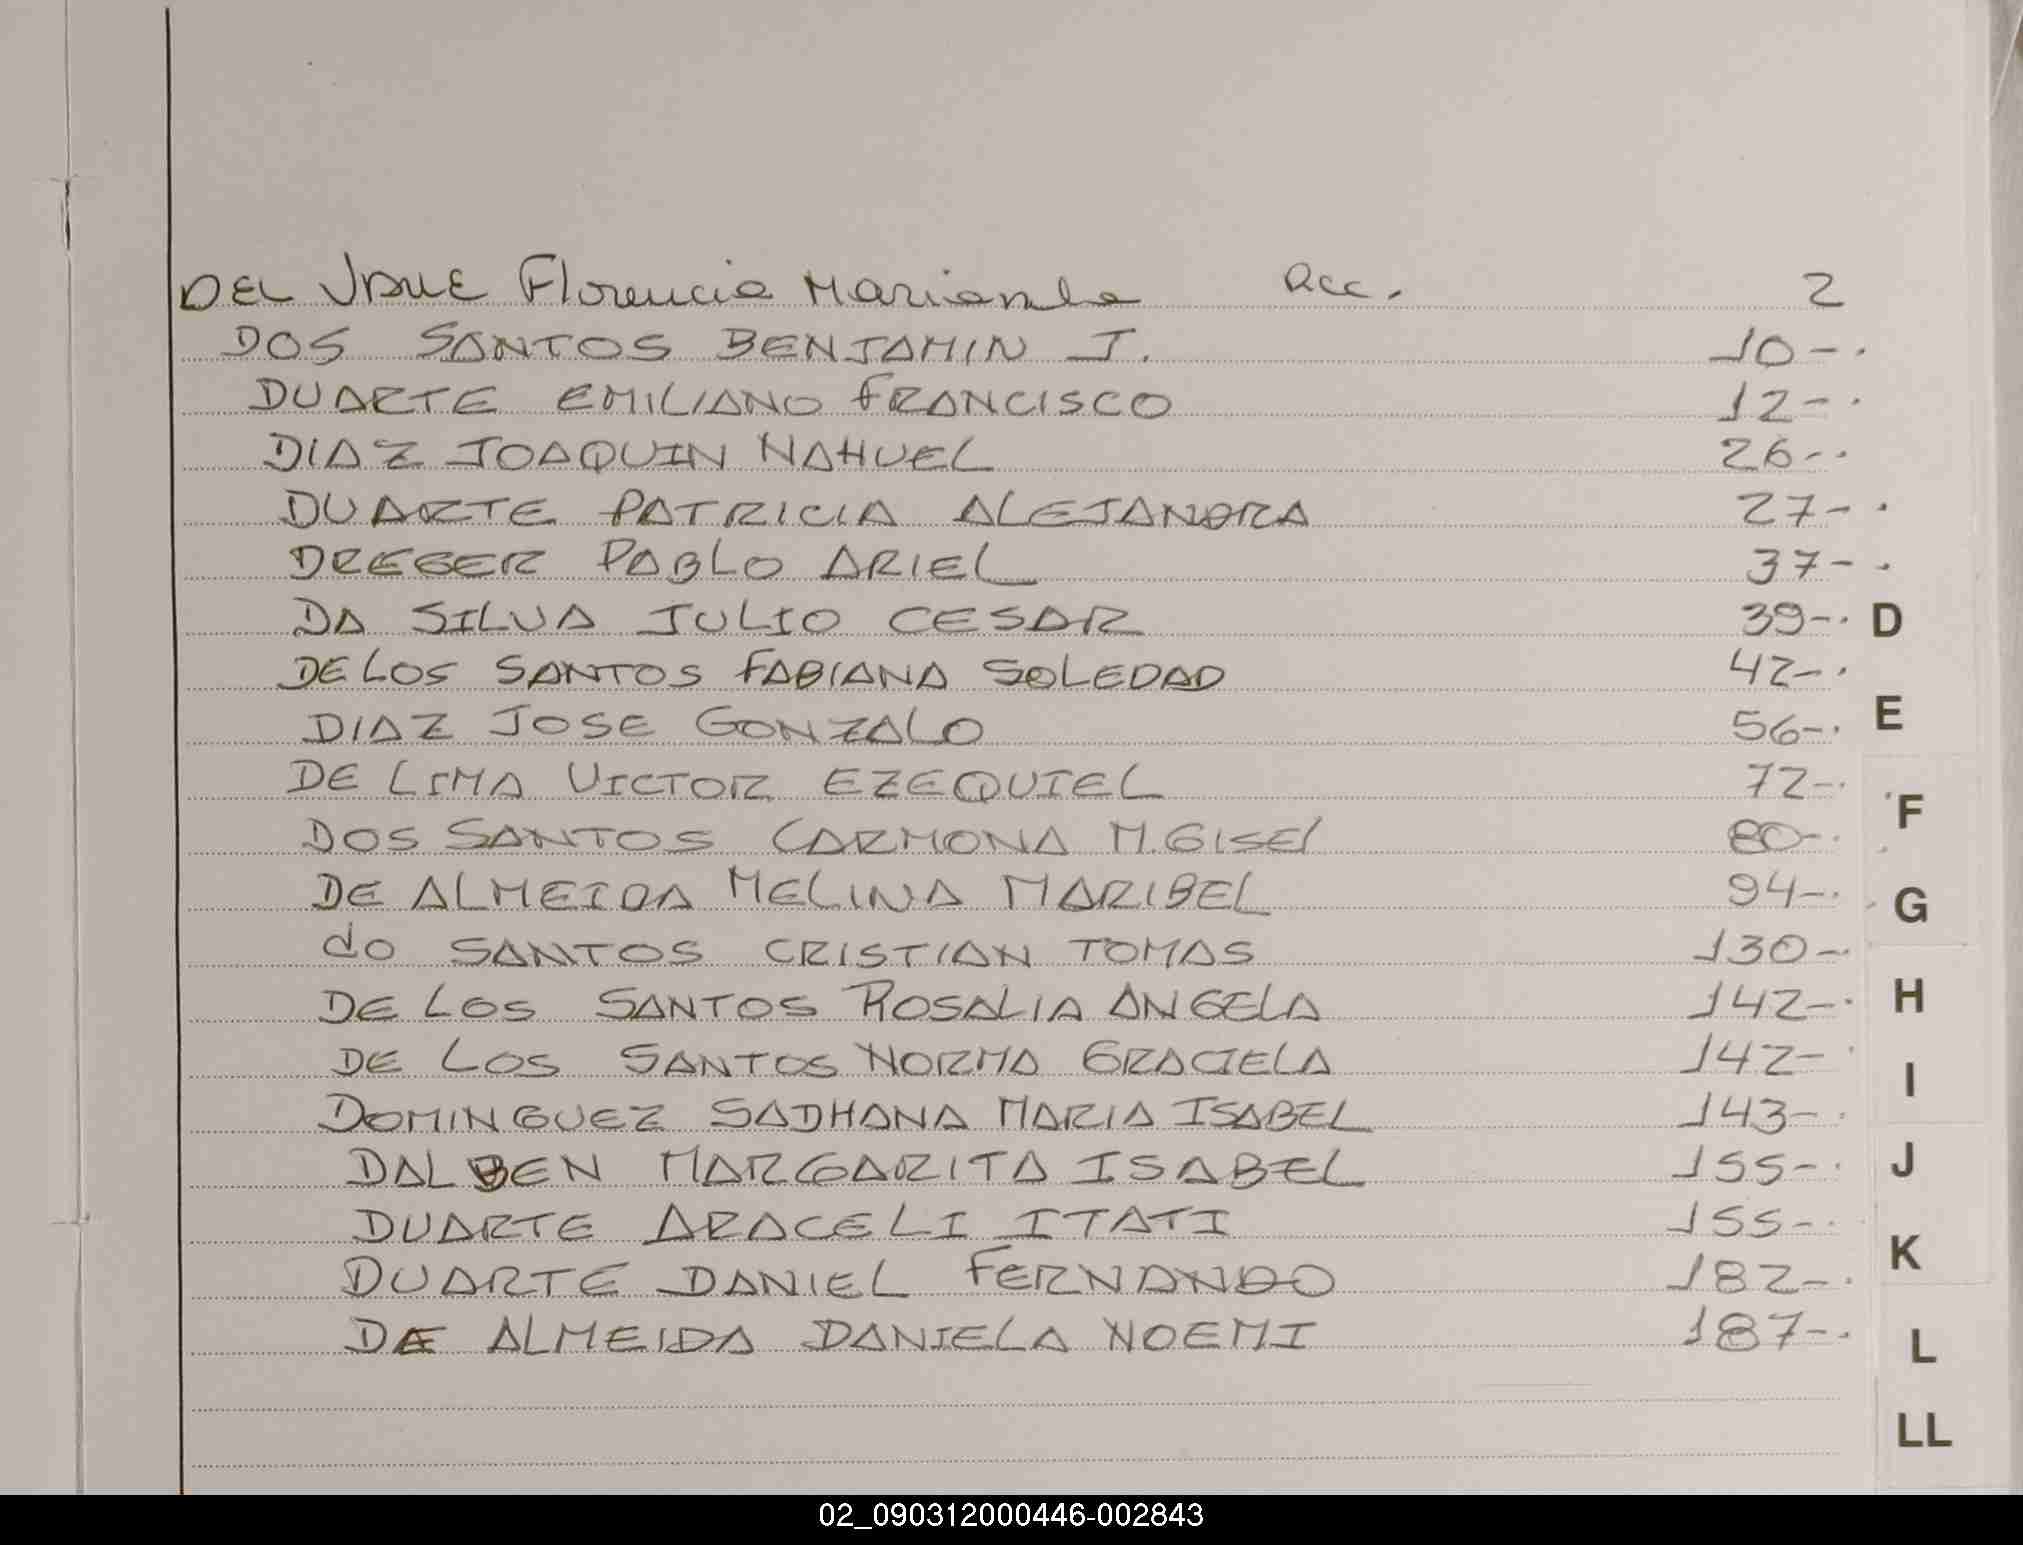 DEL Florencia acc. 2
DOS SANTOS BENJAMIN J. 10-.
DUARTE EMILIANO FRANCISCO 12-.
DIAZ JOAQUIN NAHUEL 26-.
DUARTE PATRICIA ALEJANDRA 27-.
DREGER PABLO ARIEL 37-.
DA SILVA JULIO CESAR 39-. D
DE LOS SANTOS FABIANA SOLEDAD 42-.
DIAZ JOSE GONZALO 56-. E
DE LIMA VICTOR EZEQUIEL 72-.
DOS SANTOS CARMONA M. GISEL 80-. F
DE ALMEIDA MELINA MARIBEL 94-. G
do SANTOS CRISTIAN TOMAS 130-.
DE LOS SANTOS ROSALIA ANGELA 142-. H
DE LOS SANTOS NORMA GRACIELA 142-. I
DOMINGUEZ SADHANA MARIA ISABEL 143-.
DALBEN MARGARITA ISABEL 155-. J
DUARTE ARACELI ITATI 155-.
DUARTE DANIEL FERNANDO 182-. K
DE ALMEIDA DANIELA NOEMI 187-. L
LL
02_090312000446-002843